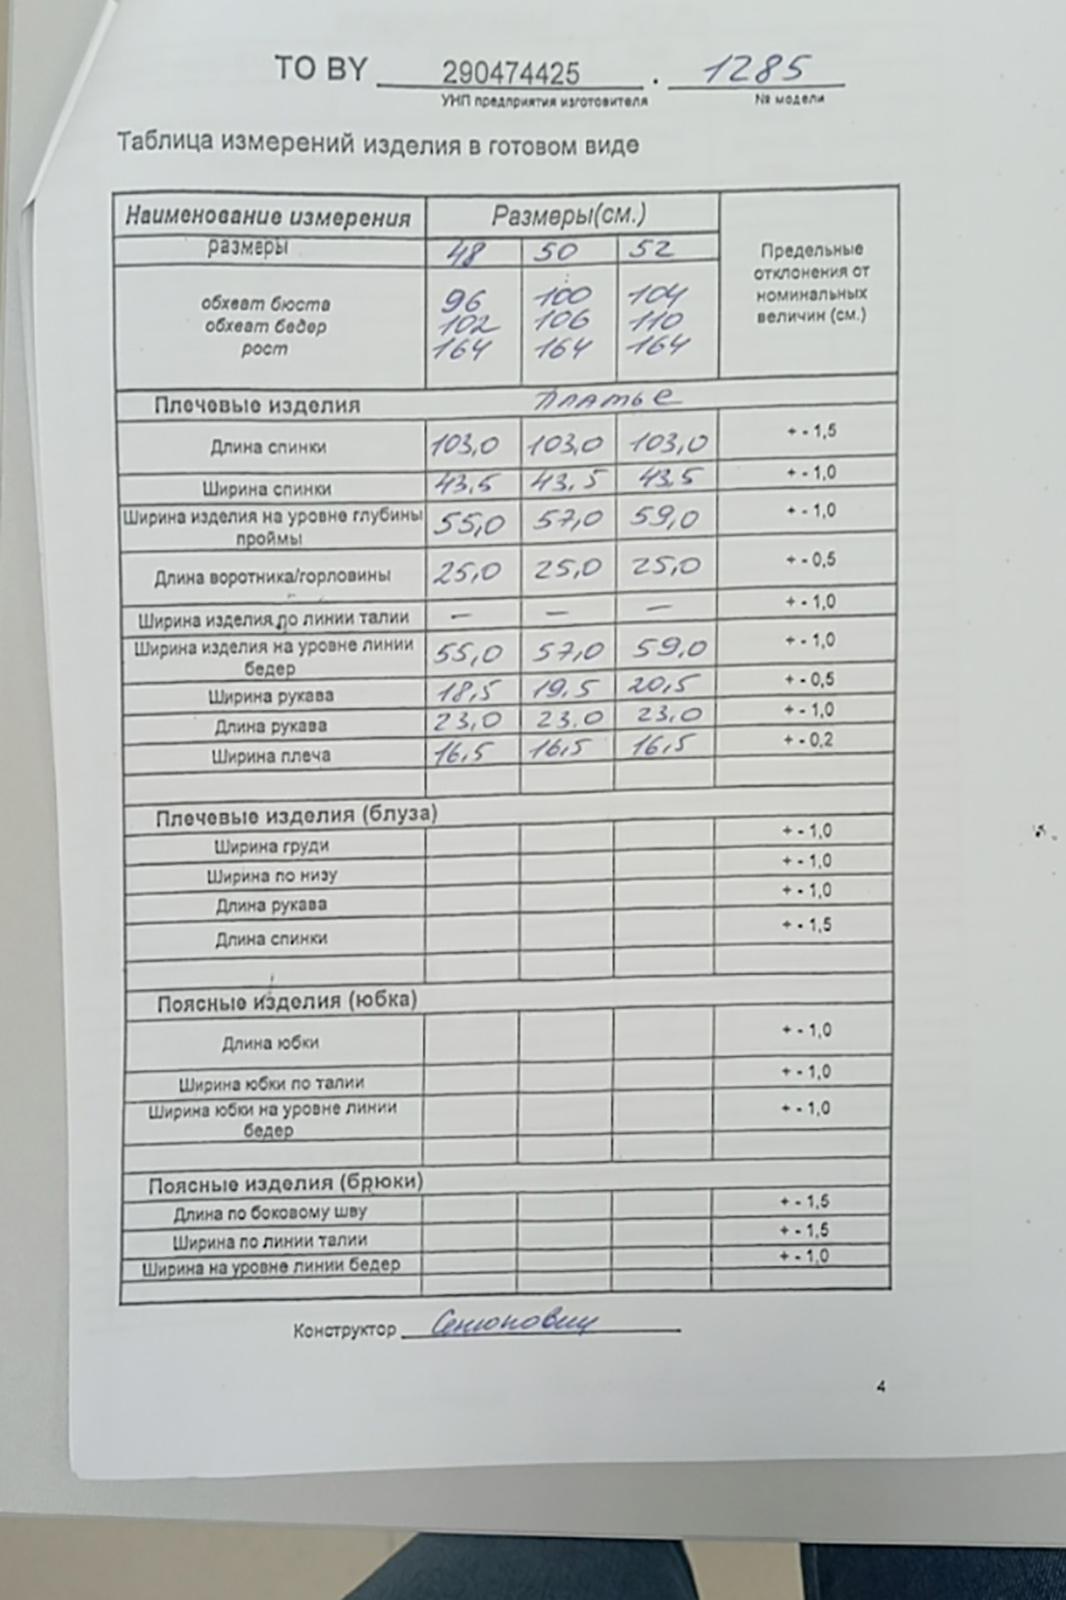 TO BY 290474425 . 1285
УНП предприятия изготовителя № модели
Таблица измерений изделия в готовом виде
Наименование измерения Размеры(см.) Предельные отклонения от номинальных величин (см.)
размеры 48 50 52
обхват бюста 96 100 104
обхват бедер 102 106 110
рост 164 164 164
Плечевые изделия платье
Длина спинки 103,0 103,0 103,0 + - 1,5
Ширина спинки 43,5 43,5 43,5 + - 1,0
Ширина изделия на уровне глубины проймы 55,0 57,0 59,0 + - 1,0
Длина воротника/горловины 25,0 25,0 25,0 + - 0,5
Ширина изделия по линии талии — — — + - 1,0
Ширина изделия на уровне линии бедер 55,0 57,0 59,0 + - 1,0
Ширина рукава 18,5 19,5 20,5 + - 0,5
Длина рукава 23,0 23,0 23,0 + - 1,0
Ширина плеча 16,5 16,5 16,5 + - 0,2
Плечевые изделия (блуза)
Ширина груди + - 1,0
Ширина по низу + - 1,0
Длина рукава + - 1,0
Длина спинки + - 1,5
Поясные изделия (юбка)
Длина юбки + - 1,0
Ширина юбки по талии + - 1,0
Ширина юбки на уровне линии бедер + - 1,0
Поясные изделия (брюки)
Длина по боковому шву + - 1,5
Ширина по линии талии + - 1,5
Ширина на уровне линии бедер + - 1,0
Конструктор
4